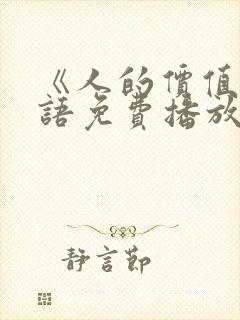 《人的價值
語免費播放
靜言節